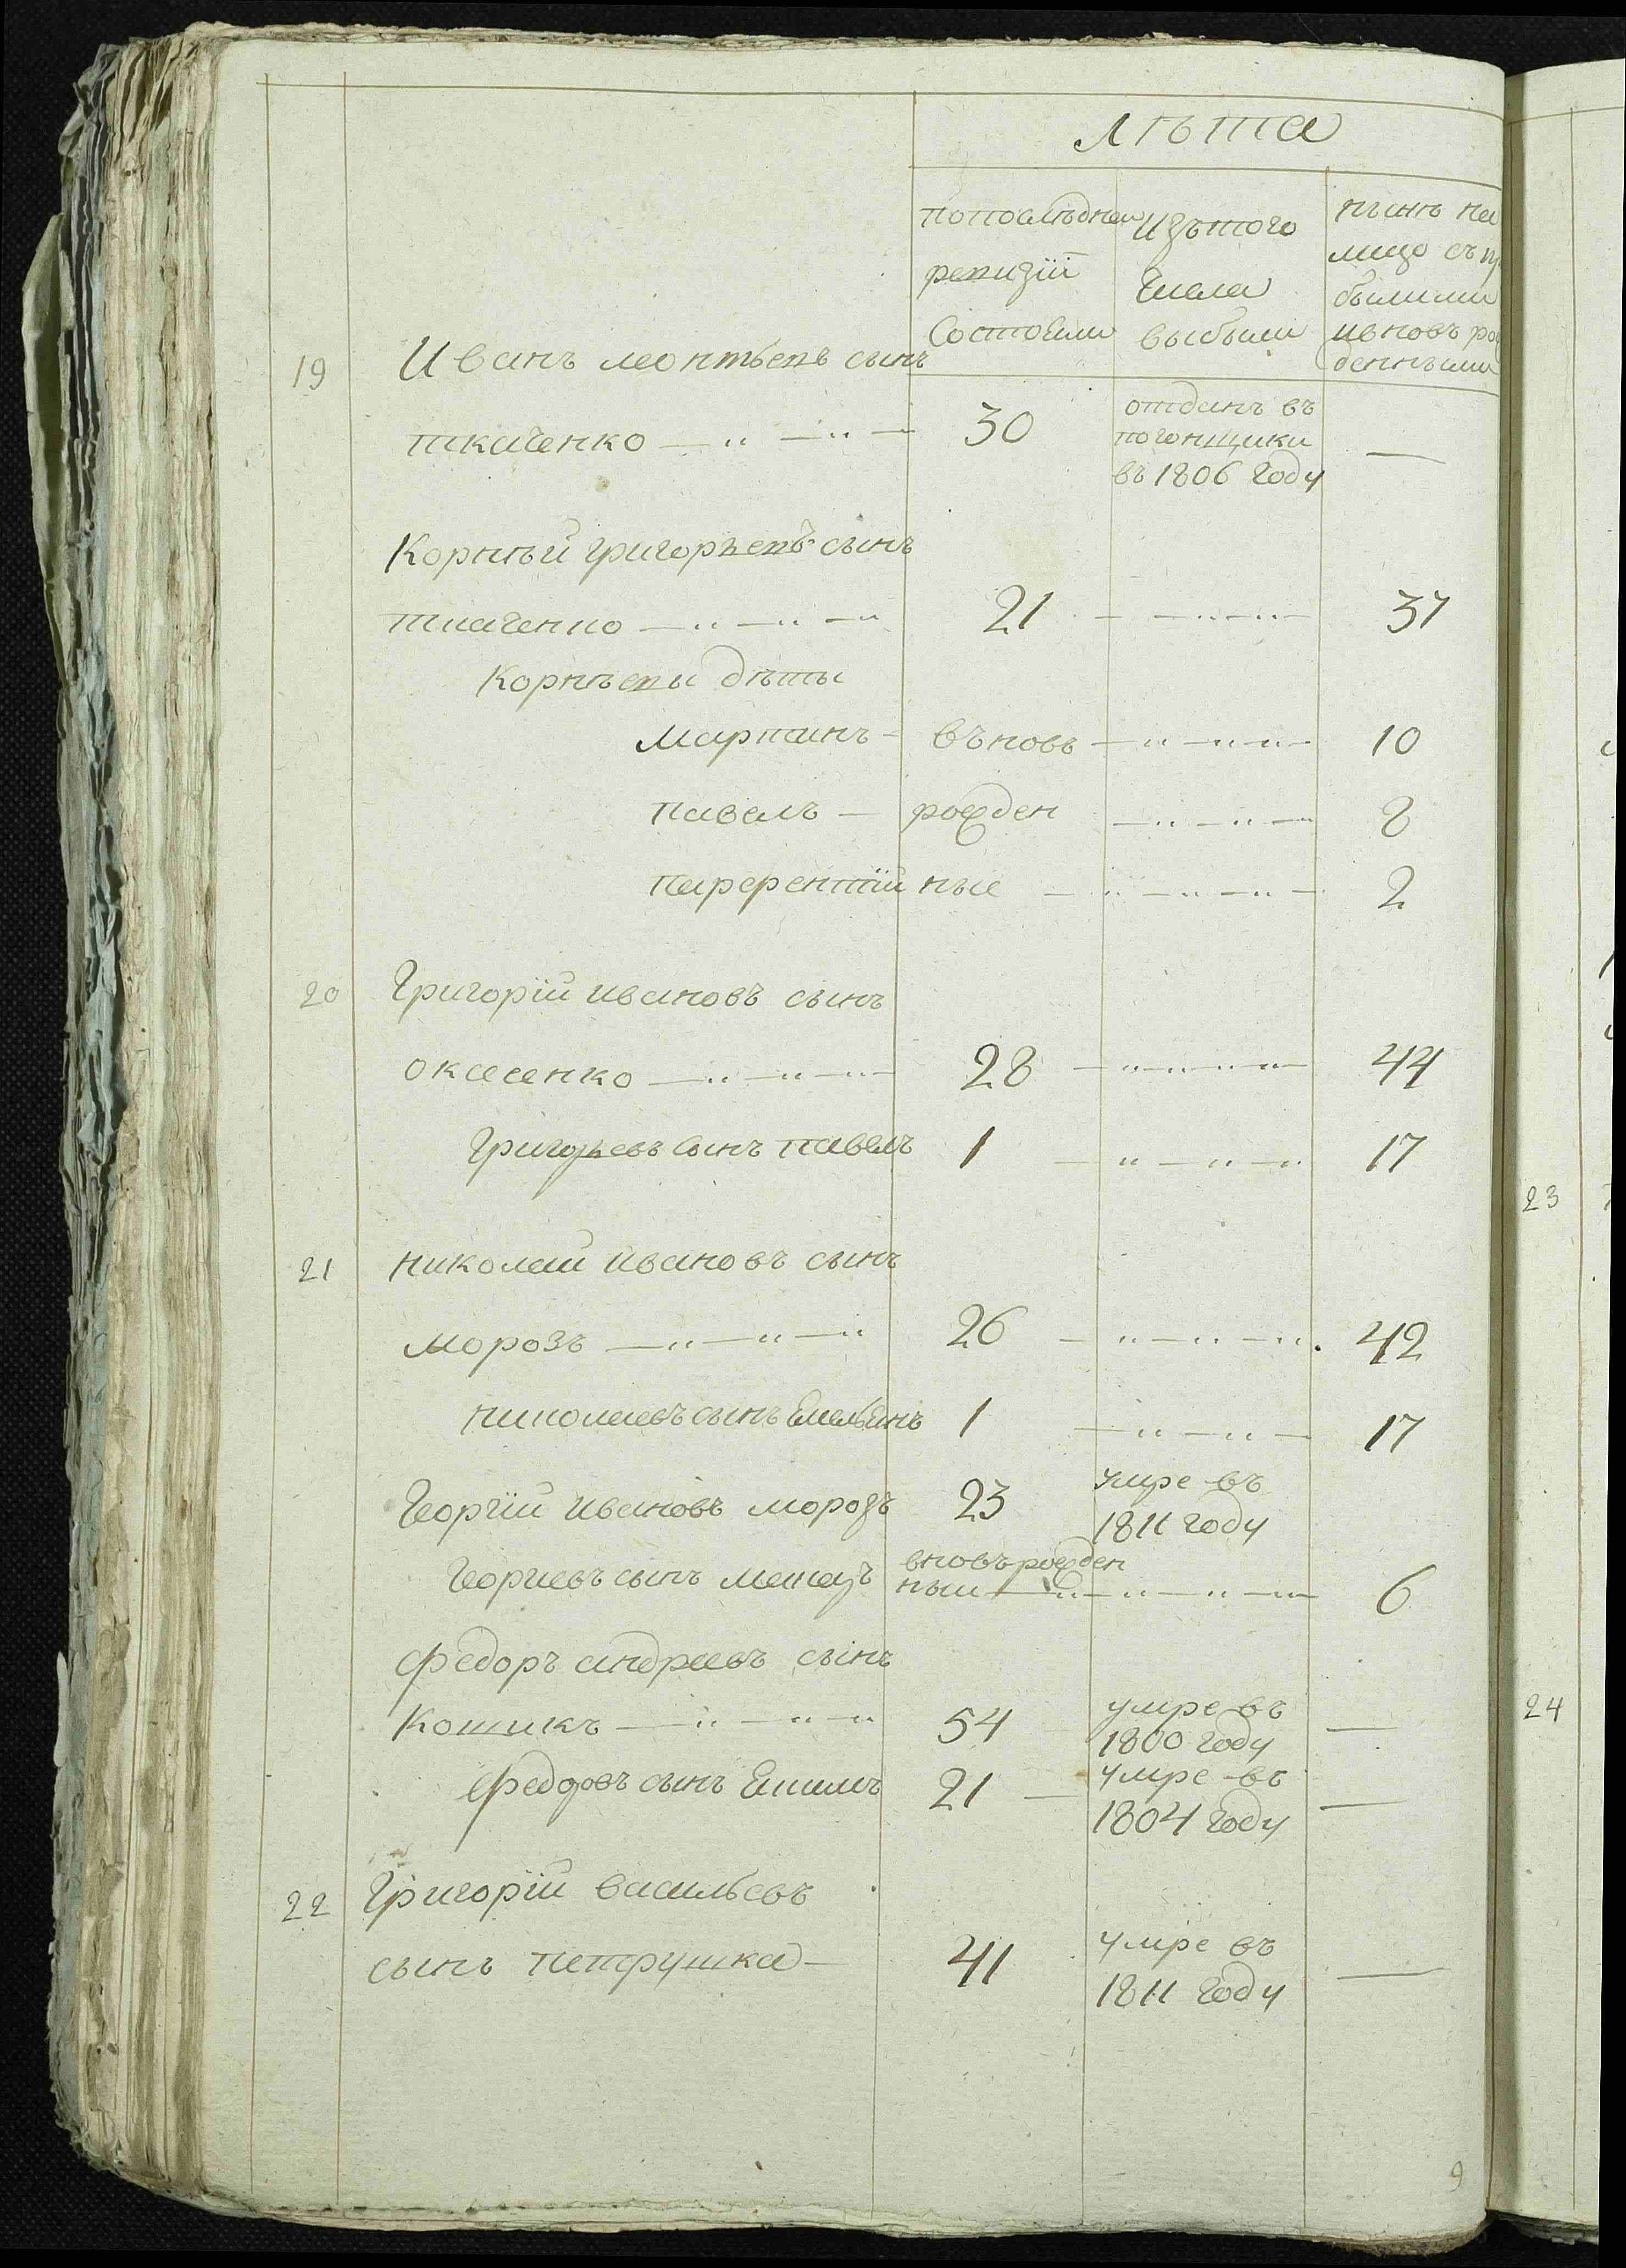 лѣта
попослѣдней
ревизіи
Состоѣли
изътого
числа
выбыли
нынѣ на
лицо съ пр
былыми
ивновъ ро
денными
19 Иванъ леонтьевъ сынъ
ткаченко — " — " — 30 отданъ въ
погонщики
въ 1806 году —
Корнѣй григорьевъ сынъ
ткаченко — " — " — " 21 — — " — " — 37
Корнѣевы дѣты
мартинъ - въновь — " — " — " — 10
павелъ — рожден — " — " — " 8
парфентій ные — " — " — " — 2
20 Григорій ивановъ сынъ
оксесенко — " — " — " — 28 — " — " — " — 44
Григорьевъ сынъ павелъ 1 — " — " — " 17
21 николай ивановъ сынъ
морозъ — " — " — " 26 — " — " — " 42
николаевъ сынъ Емельѣнъ 1 — " — " — 17
Георгій ивановъ морозъ 23 умре въ
1811 году
Георгиевъ сынъ вновърожден
ный — " — " — " — 6
федоръ андреевъ сынъ
Кошикъ — " — " — " 54 умре въ
1800 году —
Федоровъ сынъ 21 — умре въ
1804 году —
22 Григорій васильевъ
сынъ петрушка — 41 умре въ
1811 году —
9
23
24